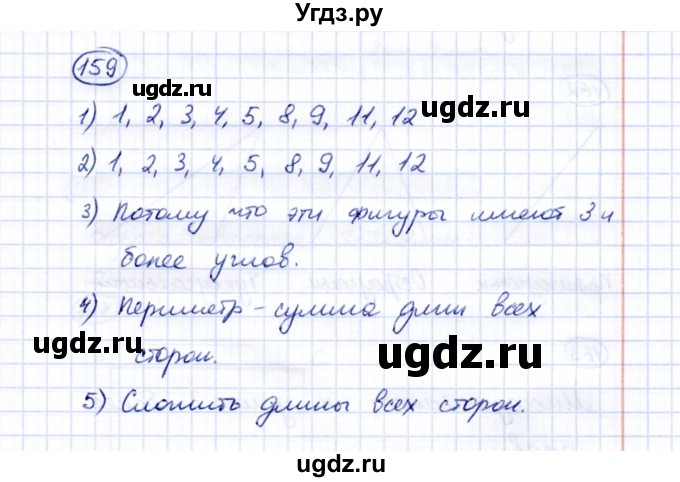 Угдз.ру
159
ugdz.ru ugdz.ru
1) 1, 2, 3, 4, 5, 8, 9, 11, 12
2) 1, 2, 3, 4, 5, 8, 9, 11, 12
3) Потому что эти фигуры имеют 3 и
более углов.
4) Периметр - сумма длин всех
сторон.
ugdz.ru ugdz.ru
5) Сложить длины всех сторон.
ugdz.ru